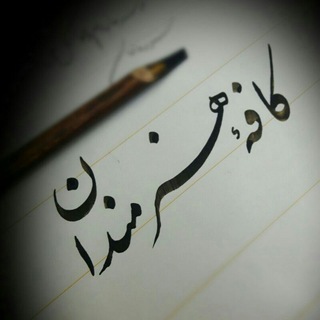 کافهٔ هنرمندان